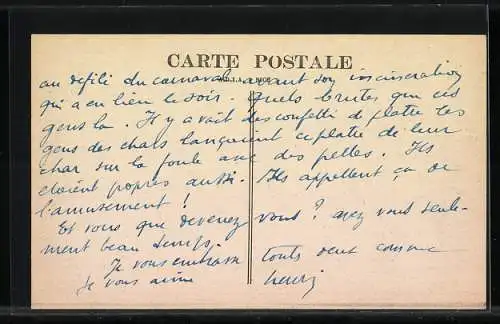 CARTE POSTALE
au défilé du carnaval avant son incinération
qui a eu lieu le soir. Quels brutes que ces
gens là. Il y avait des confetti de platre les
gens des chars lançaient ce platre de leur
char sur la foule avec des pelles. Ils
étaient propres aussi. Ils appellent ça de
l'amusement !
Et vous que devenez vous ? avez vous seule-
ment beau temps.
Je vous embrasse touts deux comme
je vous aime
Henri